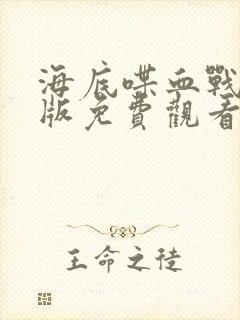 海底喋血戰
版免費觀看
王命之徒